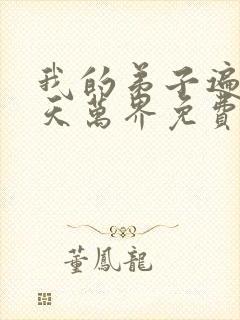 我的弟子遍
天萬界免費
董鳳龍